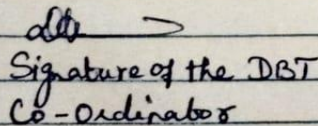 Signature of the DBT
Co-Ordinator